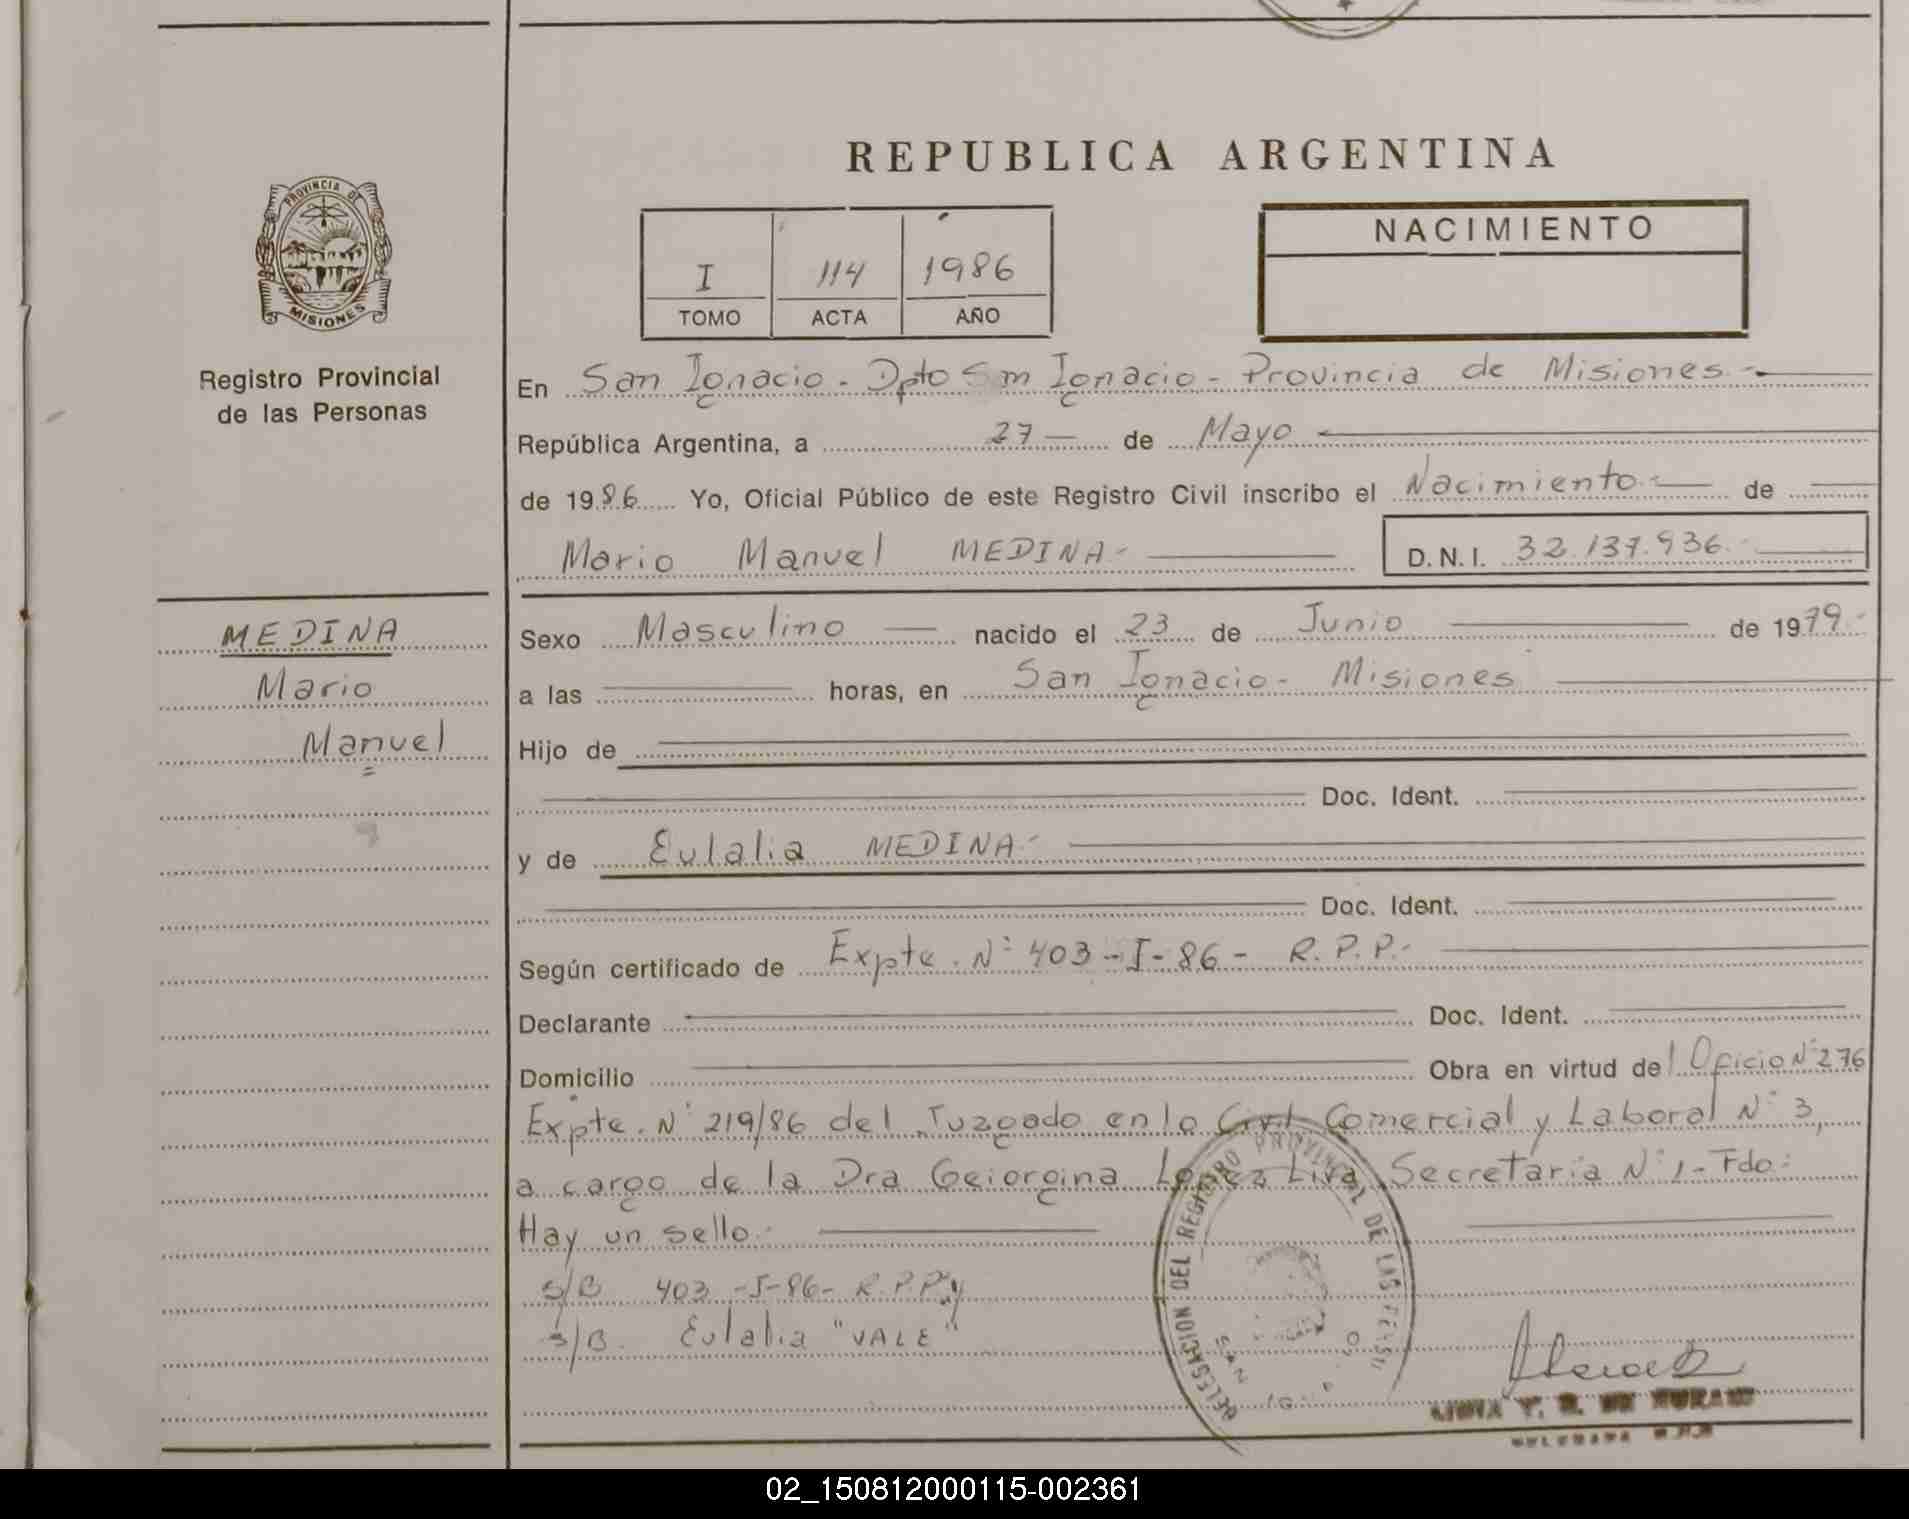 REPUBLICA ARGENTINA
PROVINCIA DE
MISIONES
Registro Provincial
de las Personas
I 114 1986
TOMO ACTA AÑO
NACIMIENTO
En San Ignacio - Dpto San Ignacio - Provincia de Misiones -
República Argentina, a 27 de Mayo
de 1986 Yo, Oficial Público de este Registro Civil inscribo el Nacimiento - de
Mario Manuel MEDINA - D.N.I. 32.137.936 -
MEDINA
Mario
Manuel
Sexo Masculino nacido el 23 de Junio de 1979 -
a las horas, en San Ignacio - Misiones
Hijo de
Doc. Ident.
y de Eulalia MEDINA -
Doc. Ident.
Según certificado de Expte. Nº 403 - I - 86 - R.P.P. -
Declarante Doc. Ident.
Domicilio Obra en virtud del Oficio Nº 276
Expte. Nº 219/86 del Juzgado en lo Civil Comercial y Laboral Nº 3,
a cargo de la Dra Geiorgina Lopez Secretaria Nº 1 - Fdo:
Hay un sello -
S/B 403 - I - 86 - R.P.P. y
S/B. Eulalia "VALE"
DELEGACION DEL REGISTRO PROVINCIAL DE LAS
SAN
02_150812000115-002361